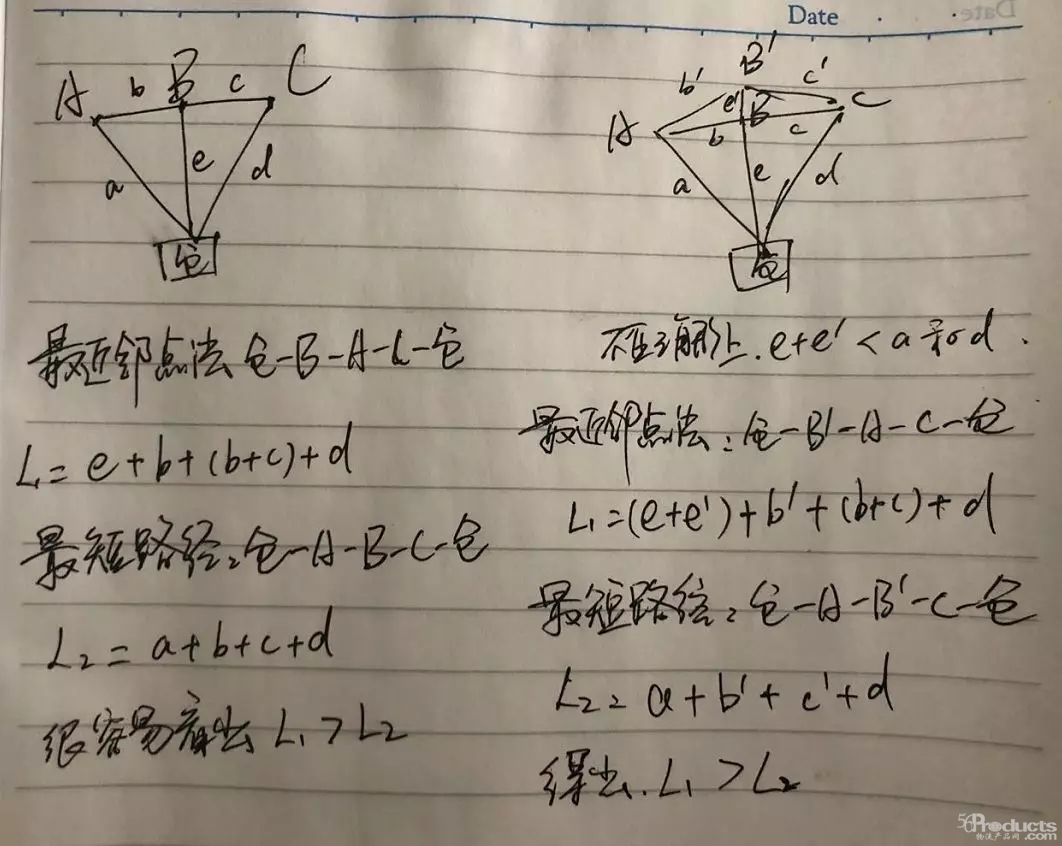 Date
Date
A b B c C
a e d
仓
最近邻点法仓-B-A-C-仓
L₁= e+b+(b+c)+d
最短路径:仓-A-B-C-仓
L₂ = a+b+c+d
很容易看出 L₁>L₂
B'
b' e' c'
A b B c C
a e d
仓
e+e'<a和d.
最近邻点法:仓-B'-A-C-仓
L₁=(e+e')+b'+(b+c)+d
最短路径:仓-A-B'-C-仓
L₂= a+b'+c'+d
得出.L₁>L₂
56Products
物流产品网.com